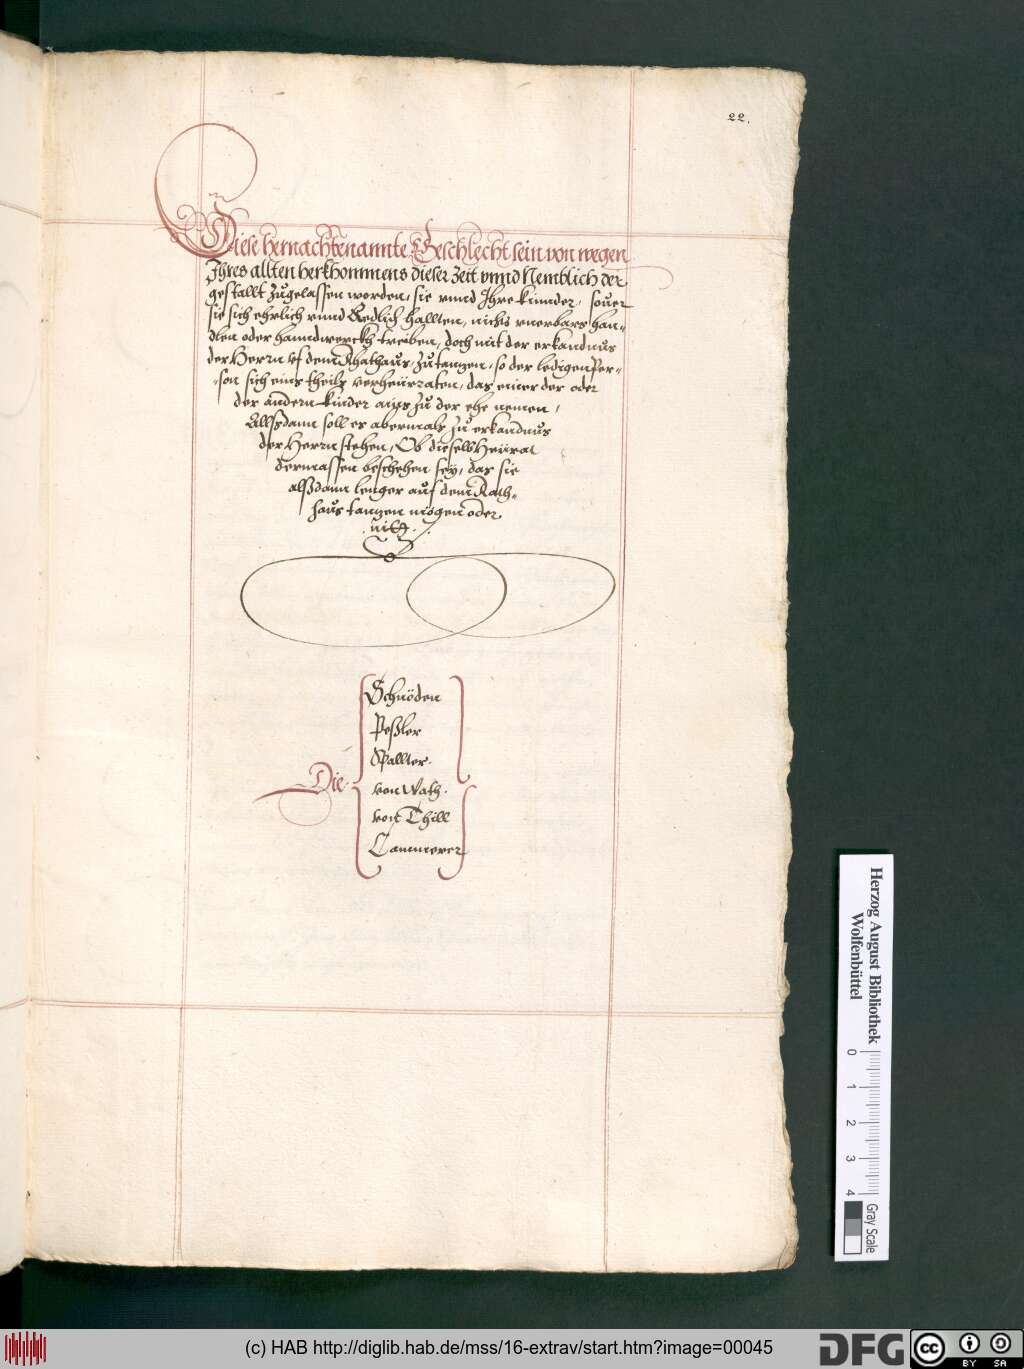 22.
Diese hernachbenannte Geschlecht sein von wegen
Ihres allten herkhommens dieser Zeit vnnd Nemblich der
gestallt Zugelassen worden, sie vnnd Ihre kinnder, souer
sie sich ehrlich vnnd Redlich hallten, nichts vnerbars han=
dlen oder hanndwerckh treiben, doch mit der erkandnus
der Herrn vf dem Rhathaus, Zu tanzen, so der ledigen Per=
=son sich eins theils verheürraten, das einer der oder
der andern kinder ains Zu der ehe nemen,
Allßdann soll es abermals Zu erkandnus
der Herrn stehen, Ob dieselb Heürat
dermassen beschehen sey, das sie
alßdann lenger auf dem Rath=
haus tanzen mögen oder
nitt.
Die
Schnöden
Peßler
Spallter.
von Wath.
vom Thill
Cammerer
Herzog August Bibliothek
Wolfenbüttel
0 1 2 3 4
Gray Scale
(c) HAB http://diglib.hab.de/mss/16-extrav/start.htm?image=00045
DFG
cc BY SA